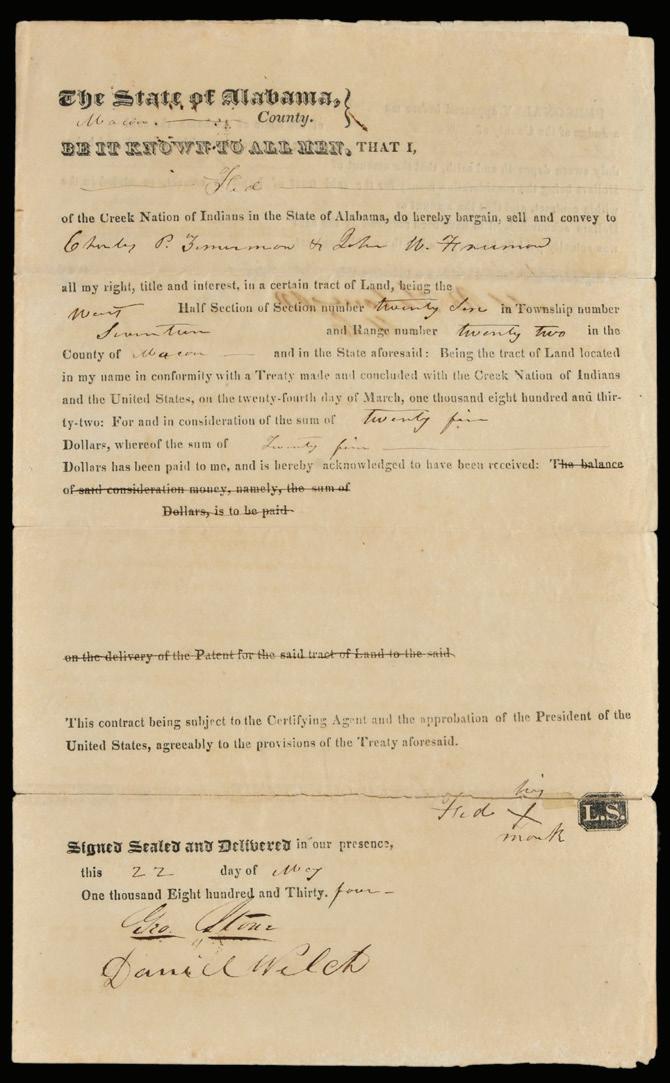 The State of Alabama,
Macon County.
BE IT KNOWN TO ALL MEN, THAT I,
Fed
of the Creek Nation of Indians in the State of Alabama, do hereby bargain, sell and convey to
Charles P. & John W. Freeman
all my right, title and interest, in a certain tract of Land, being the
West Half Section of Section number twenty in Township number
Seventeen and Range number twenty two in the
County of Macon and in the State aforesaid: Being the tract of Land located
in my name in conformity with a Treaty made and concluded with the Creek Nation of Indians
and the United States, on the twenty-fourth day of March, one thousand eight hundred and thir-
ty-two: For and in consideration of the sum of twenty five
Dollars, whereof the sum of Twenty five
Dollars has been paid to me, and is hereby acknowledged to have been received: The balance
of said consideration money, namely, the sum of
Dollars, is to be paid
on the delivery of the Patent for the said tract of Land to the said
This contract being subject to the Certifying Agent and the approbation of the President of the
United States, agreeably to the provisions of the Treaty aforesaid.
his
Fed X L.S.
mark
Signed Sealed and Delivered in our presence,
this 22 day of May
One thousand Eight hundred and Thirty. four
Geo. Stone
Daniel Welch